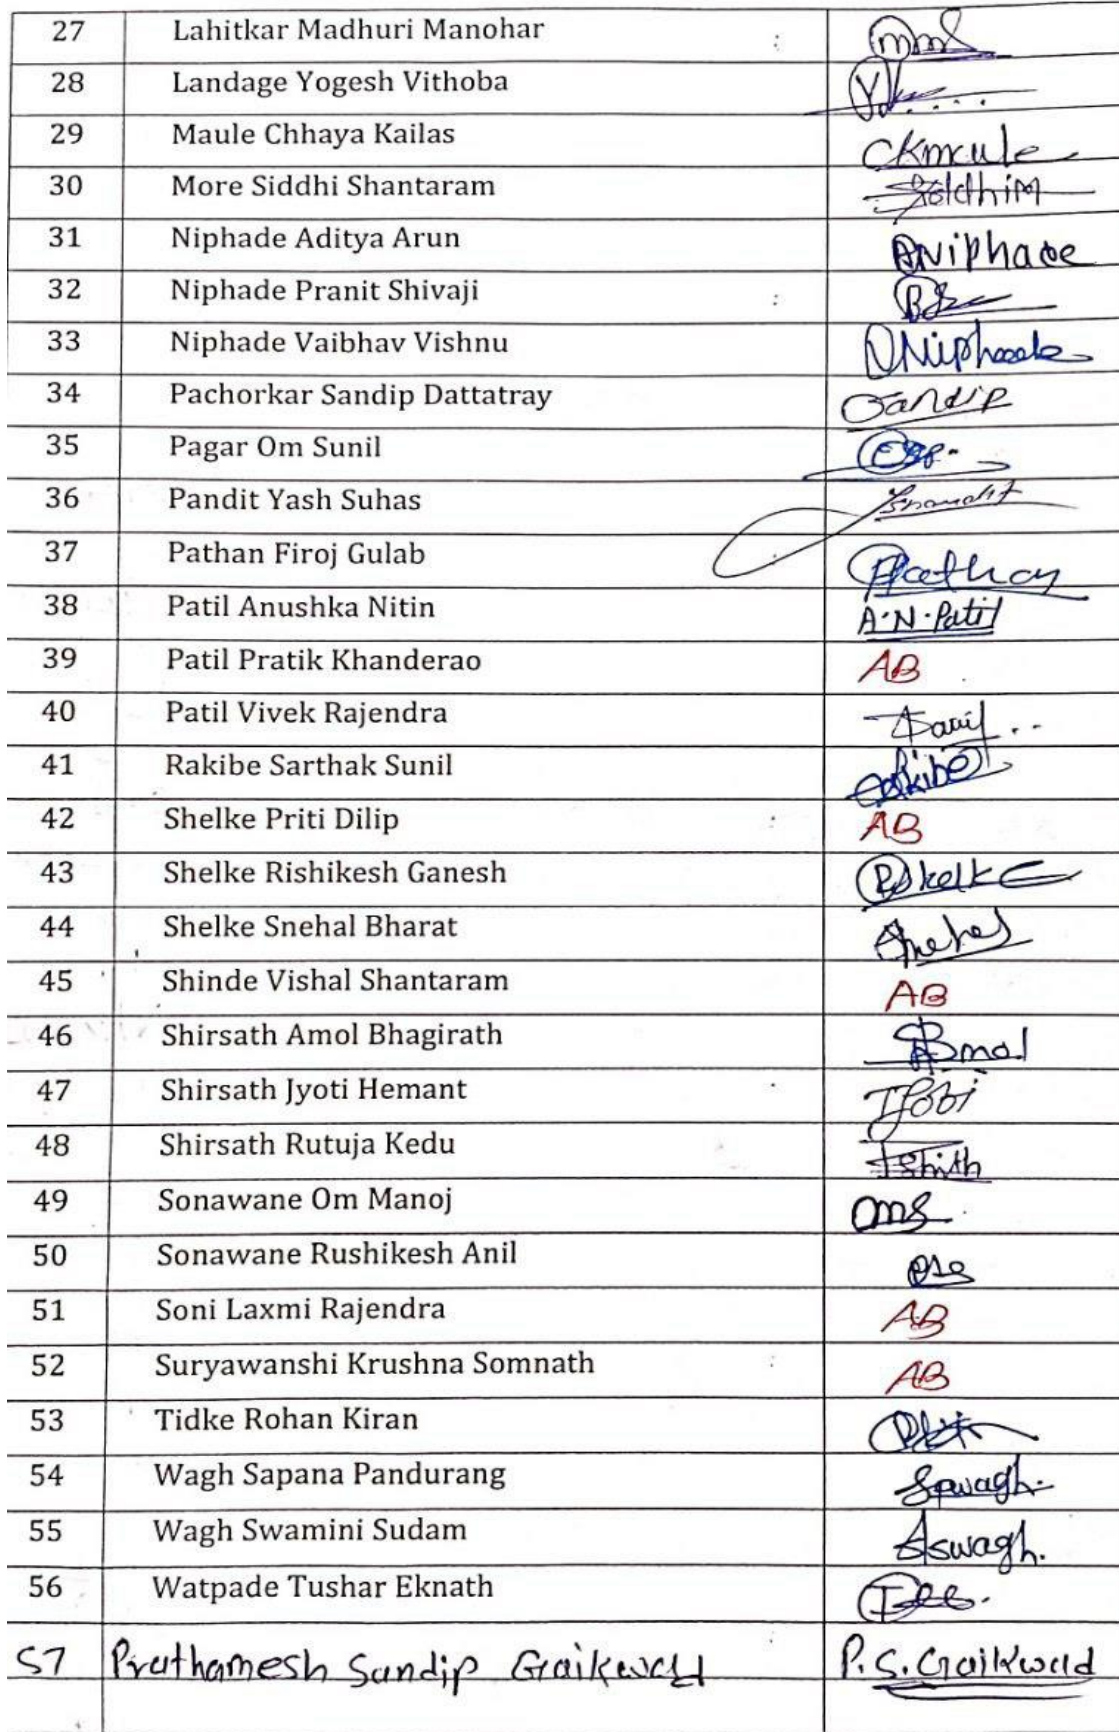 27 Lahitkar Madhuri Manohar
28 Landage Yogesh Vithoba
29 Maule Chhaya Kailas CKmaule
30 More Siddhi Shantaram
31 Niphade Aditya Arun ANiphade
32 Niphade Pranit Shivaji
33 Niphade Vaibhav Vishnu
34 Pachorkar Sandip Dattatray Sandip
35 Pagar Om Sunil
36 Pandit Yash Suhas
37 Pathan Firoj Gulab
38 Patil Anushka Nitin A.N.Patil
39 Patil Pratik Khanderao AB
40 Patil Vivek Rajendra
41 Rakibe Sarthak Sunil
42 Shelke Priti Dilip AB
43 Shelke Rishikesh Ganesh
44 Shelke Snehal Bharat
45 Shinde Vishal Shantaram AB
46 Shirsath Amol Bhagirath
47 Shirsath Jyoti Hemant
48 Shirsath Rutuja Kedu
49 Sonawane Om Manoj oms
50 Sonawane Rushikesh Anil
51 Soni Laxmi Rajendra AB
52 Suryawanshi Krushna Somnath AB
53 Tidke Rohan Kiran
54 Wagh Sapana Pandurang Spwagh.
55 Wagh Swamini Sudam Sswagh.
56 Watpade Tushar Eknath
57 Prathamesh Sandip Gaikwad P.S.Gaikwad